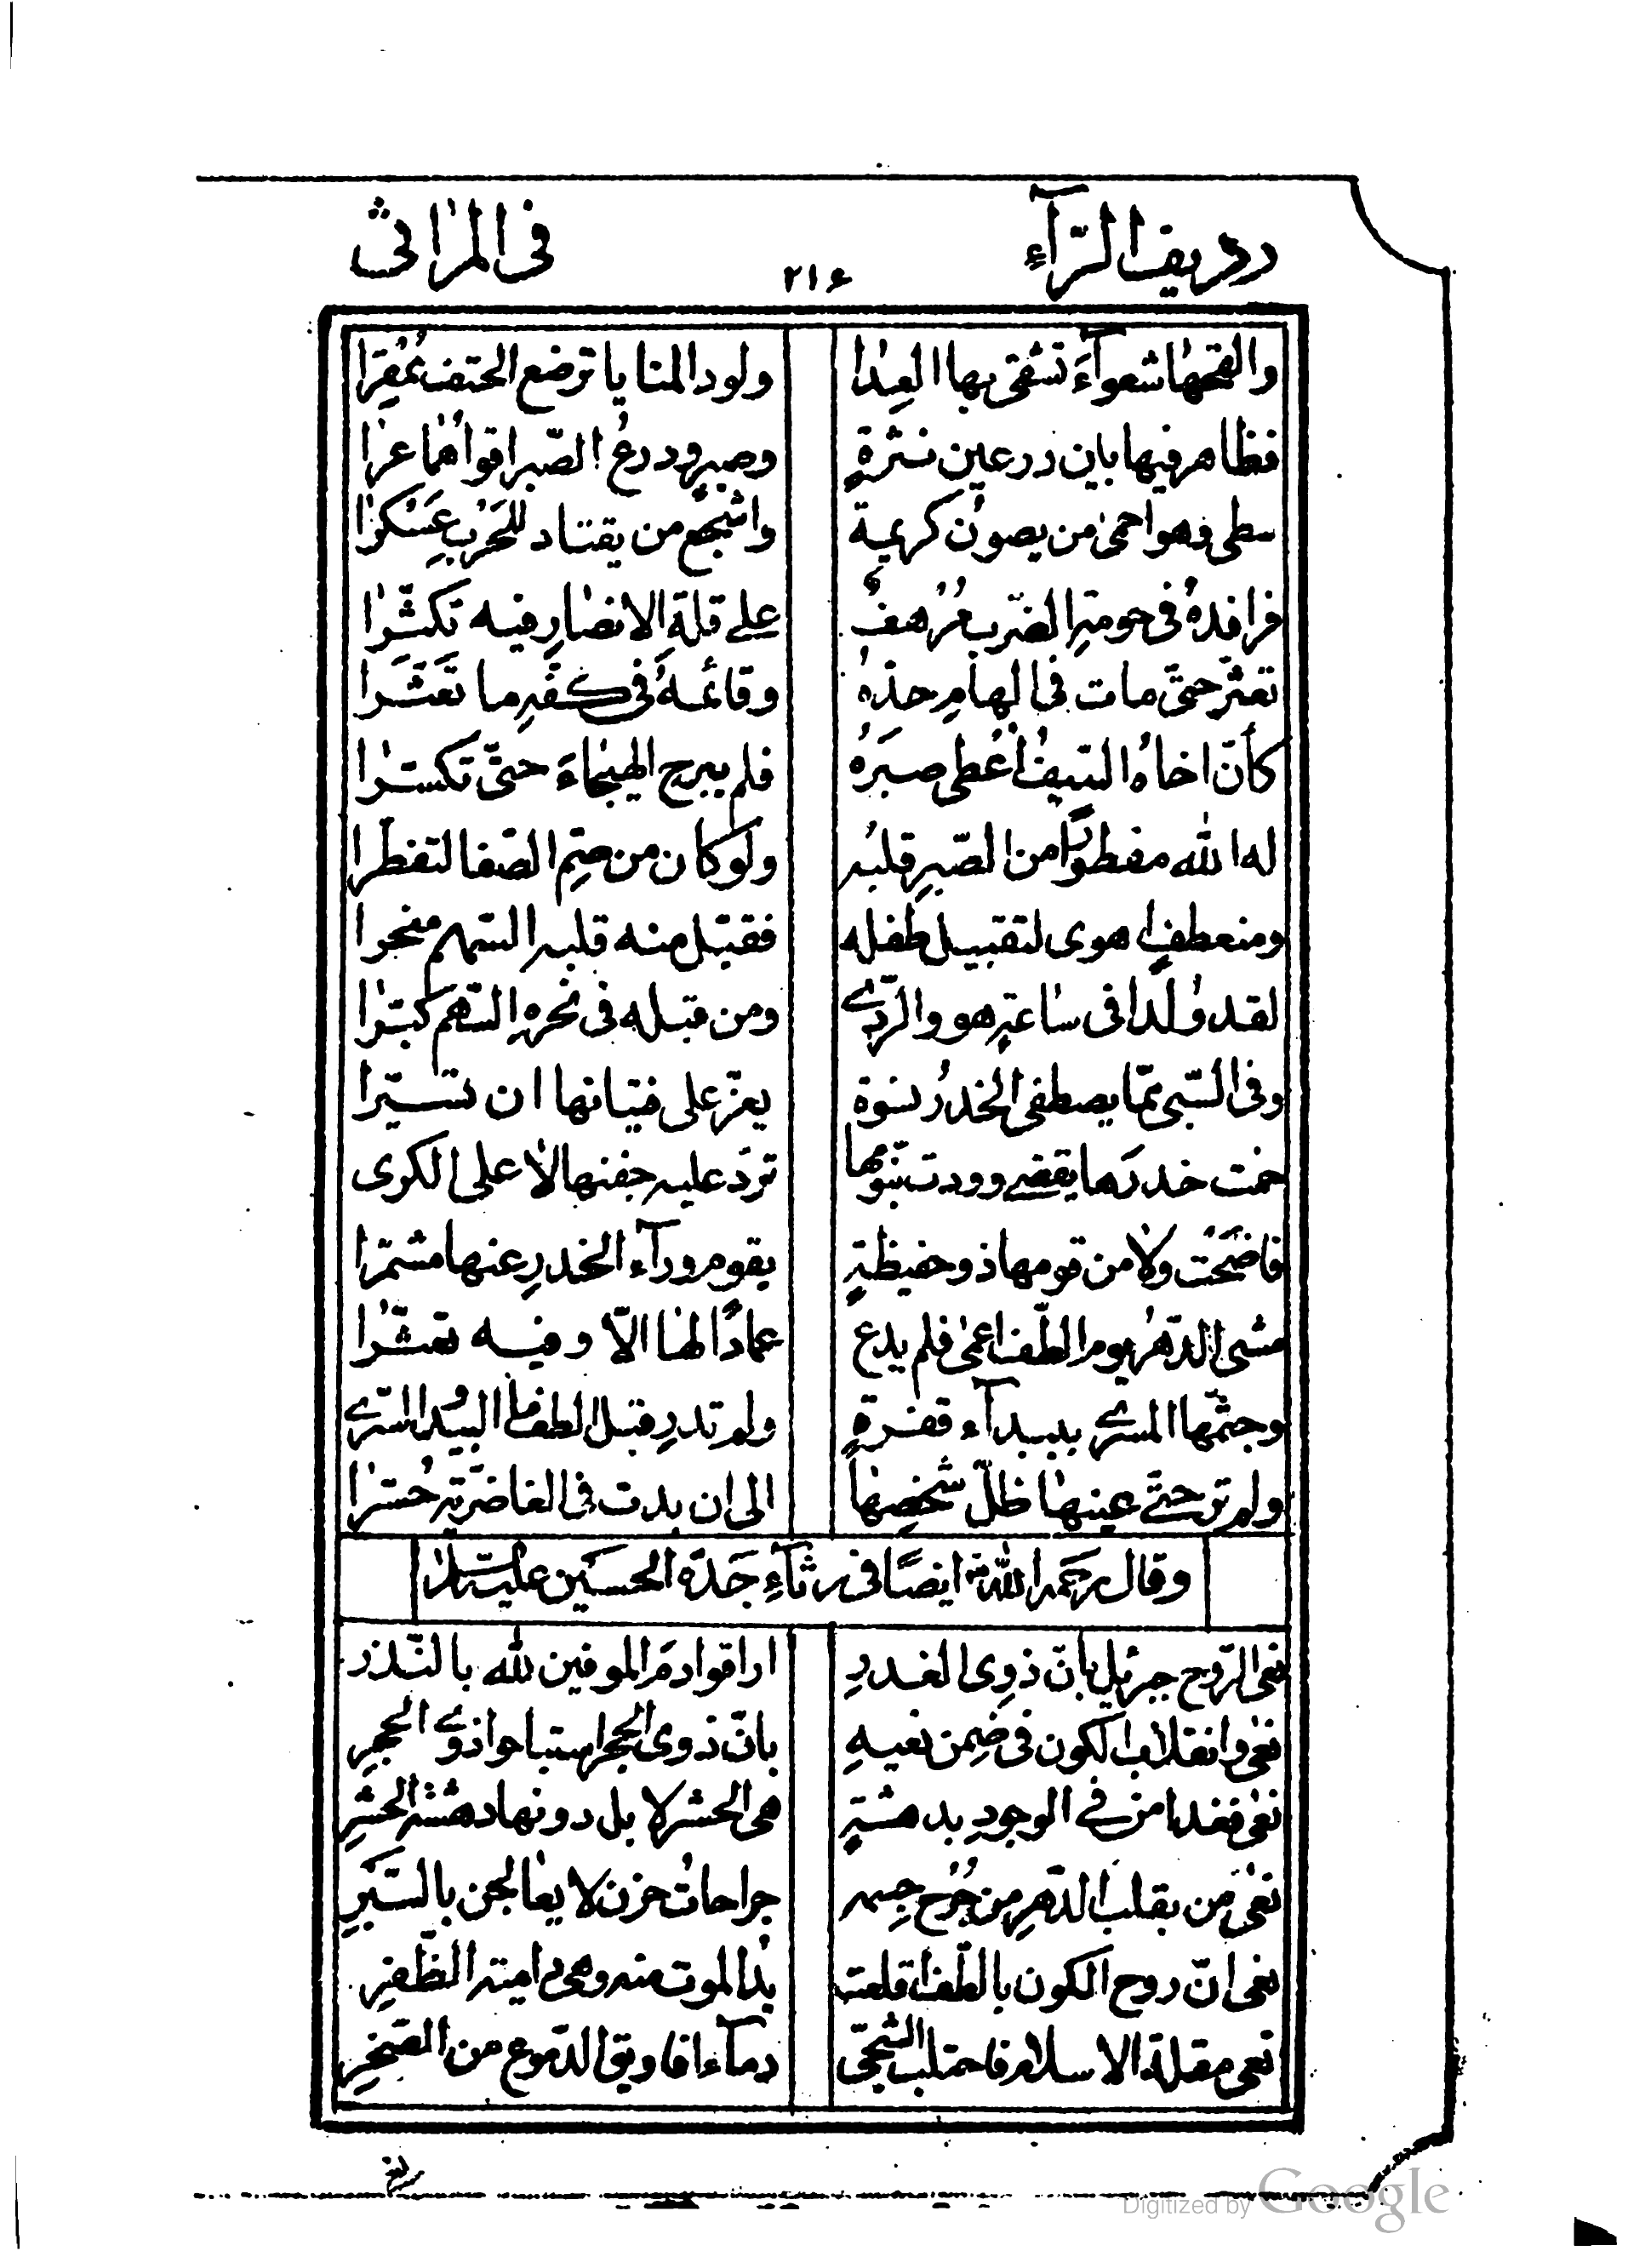 در ردیف الرّآءِ ٢١۶ فی المراثی
والقحها شعوآءَ تشقی بها العِدا ولود المنایا ترضع الحتف مُمْقِرَا
فظاهر فیها بین درعین نثرةٍ وصبرٍ ودرعُ الصّبر اقواهُما عرا
سطی وهو احمیٰ من یصون کریمة واشجع من یقتاد للحَرْبِ عَسْکرا
فرافدهُ فی حومةِ الضّرب مُرْهفٌ علے قلّةِ الانصارِ فیه تکثّرا
تعثّر حتّی مات فی الهامِ حدّهُ وقائمهُ فی کفّهِ ما تَعَثّرا
کأنّ اخاهُ السّیفُ اُعْطی صَبرَهُ فلم یبرح الهیجاءَ حتّی تکسّرا
له الله مفطورًا من الصّبرِ قلبه ولو کان من صمّ الصّفا لتفطّرا
ومنعطفٍ اهوی لتقبیل طفله فقبّل منه قبله السّهم منحرا
لقد ولدا فی ساعةٍ هو والرّدے ومن قبله فی نحرهِ السّهم کبّرا
وفی السّبی ممّا یصطفی الخدرُ نسوة یعزّ علی فتیانها ان تسیّرا
حمت خدرها یقضے وودت بنومها تردّ علیه جفنها لا علی الکری
فاضحَت ولا من قومها ذو حفیظةٍ یقوم ورآء الخدرِ عنها مشمّرا
مشی الدّهرُ یوم الطّف اعمیٰ فلم یدع عمادًا لها الّا وفیه تعثّرا
وجشّمها المسرے ببیدآء قفرةٍ ولم تدرِ قبل الطفّ ما البیدُ السّرے
ولم تر حتّے عینها ظلّ شخصها الی ان بدت فی الغاضریّة حُسّرا
وقال رحمه الله ایضًا فی رثآءِ جَدّه الحسَین علیه السّلام
نعی الرّوح جبرئیل بانّ ذوِی الغدرِ اراقوا دمَ الموفین لله بالنّذر
نعی وانقلاب الکون فی ضِمن نعیهِ بانّ ذوی الحجر استباحوا ذوے الحِجرِ
نعیٰ فغدا من فے الوجودِ بدهشةٍ هی الحشر لا بل دونها دهشة الحشرِ
نعیٰ من بقلب الدّهرِ من جُرْح جِسمه جراحاتُ حزن لا یعالجن بالسّبرِ
نعی انّ روح الکون بالطّف اقلعت یدُ الموت منه وهی دامیة الظّفرِ
نعی مقلة الاسلام فاحتلب الشّجی دمآء افاویق الدّموع من الصّخرِ
Digitized by Google